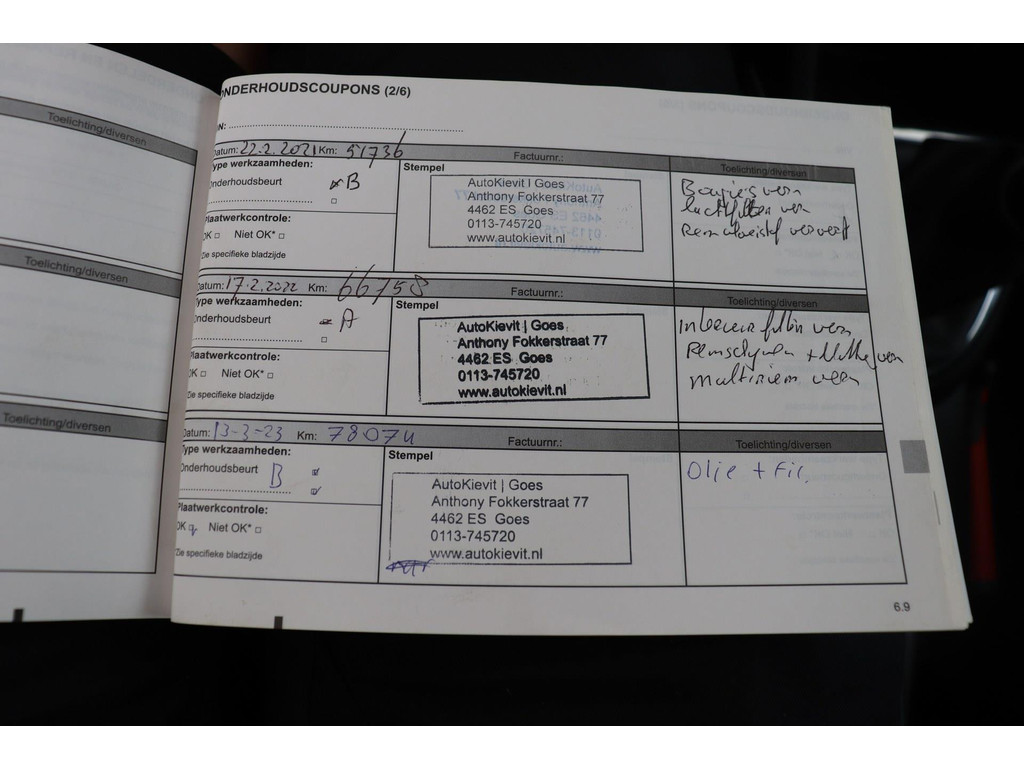 Toelichting/diversen
Toelichting/diversen
Toelichting/diversen
NDERHOUDSCOUPONS (2/6)
N:
Datum: 22.2.2021 Km: 51736 Factuurnr.: Toelichting/diversen
ype werkzaamheden:
Onderhoudsbeurt B
Plaatwerkcontrole:
OK □ Niet OK* □
Zie specifieke bladzijde
Stempel
AutoKievit | Goes
Anthony Fokkerstraat 77
4462 ES Goes
0113-745720
www.autokievit.nl
Bougies verv
luchtfilter verv
Remvloeistof ververst
Datum: 17.2.2022 Km: 66758 Factuurnr.: Toelichting/diversen
ype werkzaamheden:
Onderhoudsbeurt A
Plaatwerkcontrole:
OK □ Niet OK* □
Zie specifieke bladzijde
Stempel
AutoKievit | Goes
Anthony Fokkerstraat 77
4462 ES Goes
0113-745720
www.autokievit.nl
Interieurfilter verv
Remschijven + verv
multiriem verv
Datum: 13-3-23 Km: 78074 Factuurnr.: Toelichting/diversen
Type werkzaamheden:
Onderhoudsbeurt B
Plaatwerkcontrole:
OK Niet OK* □
Zie specifieke bladzijde
Stempel
AutoKievit | Goes
Anthony Fokkerstraat 77
4462 ES Goes
0113-745720
www.autokievit.nl
Olie + Fil.
6.9